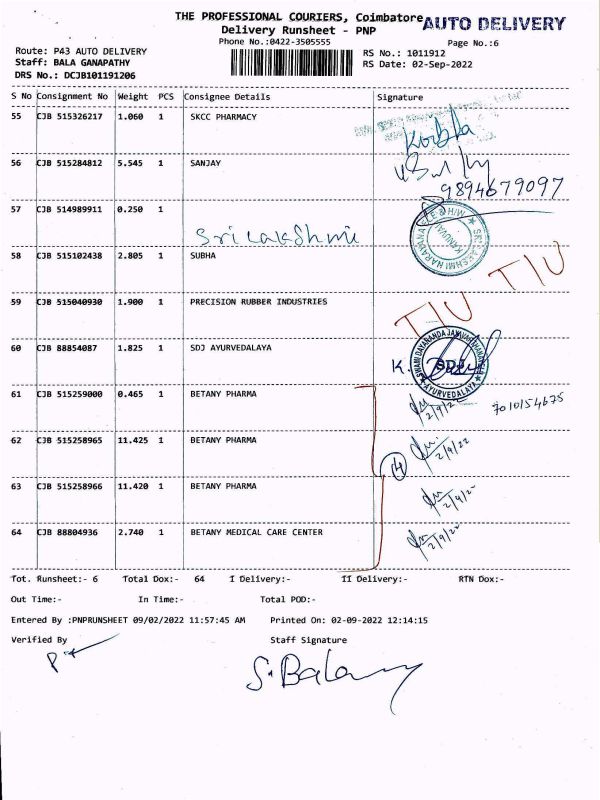 THE PROFESSIONAL COURIERS, Coimbatore
AUTO DELIVERY
Delivery Runsheet - PNP
Phone No.:0422-3505555
Page No.:6
Route: P43 AUTO DELIVERY
RS No.: 1011912
Staff: BALA GANAPATHY
RS Date: 02-Sep-2022
DRS No.: DCJB101191206
S No Consignment No Weight PCS Consignee Details Signature
55 CJB 515326217 1.060 1 SKCC PHARMACY
56 CJB 515284812 5.545 1 SANJAY
9894679097
57 CJB 514989911 0.250 1
Sri Lakshmi
58 CJB 515102438 2.805 1 SUBHA
T/U
59 CJB 515040930 1.900 1 PRECISION RUBBER INDUSTRIES
T/U
60 CJB 88854087 1.825 1 SDJ AYURVEDALAYA
K. SDJ
AYURVEDALAYA
61 CJB 515259000 0.465 1 BETANY PHARMA
2/9/22 7010154675
62 CJB 515258965 11.425 1 BETANY PHARMA
2/9/22
4
63 CJB 515258966 11.420 1 BETANY PHARMA
2/9/22
64 CJB 88804936 2.740 1 BETANY MEDICAL CARE CENTER
2/9/22
Tot. Runsheet:- 6 Total Dox:- 64 I Delivery:- II Delivery:- RTN Dox:-
Out Time:- In Time:- Total POD:-
Entered By :PNPRUNSHEET 09/02/2022 11:57:45 AM Printed On: 02-09-2022 12:14:15
Verified By Staff Signature
S. Bala